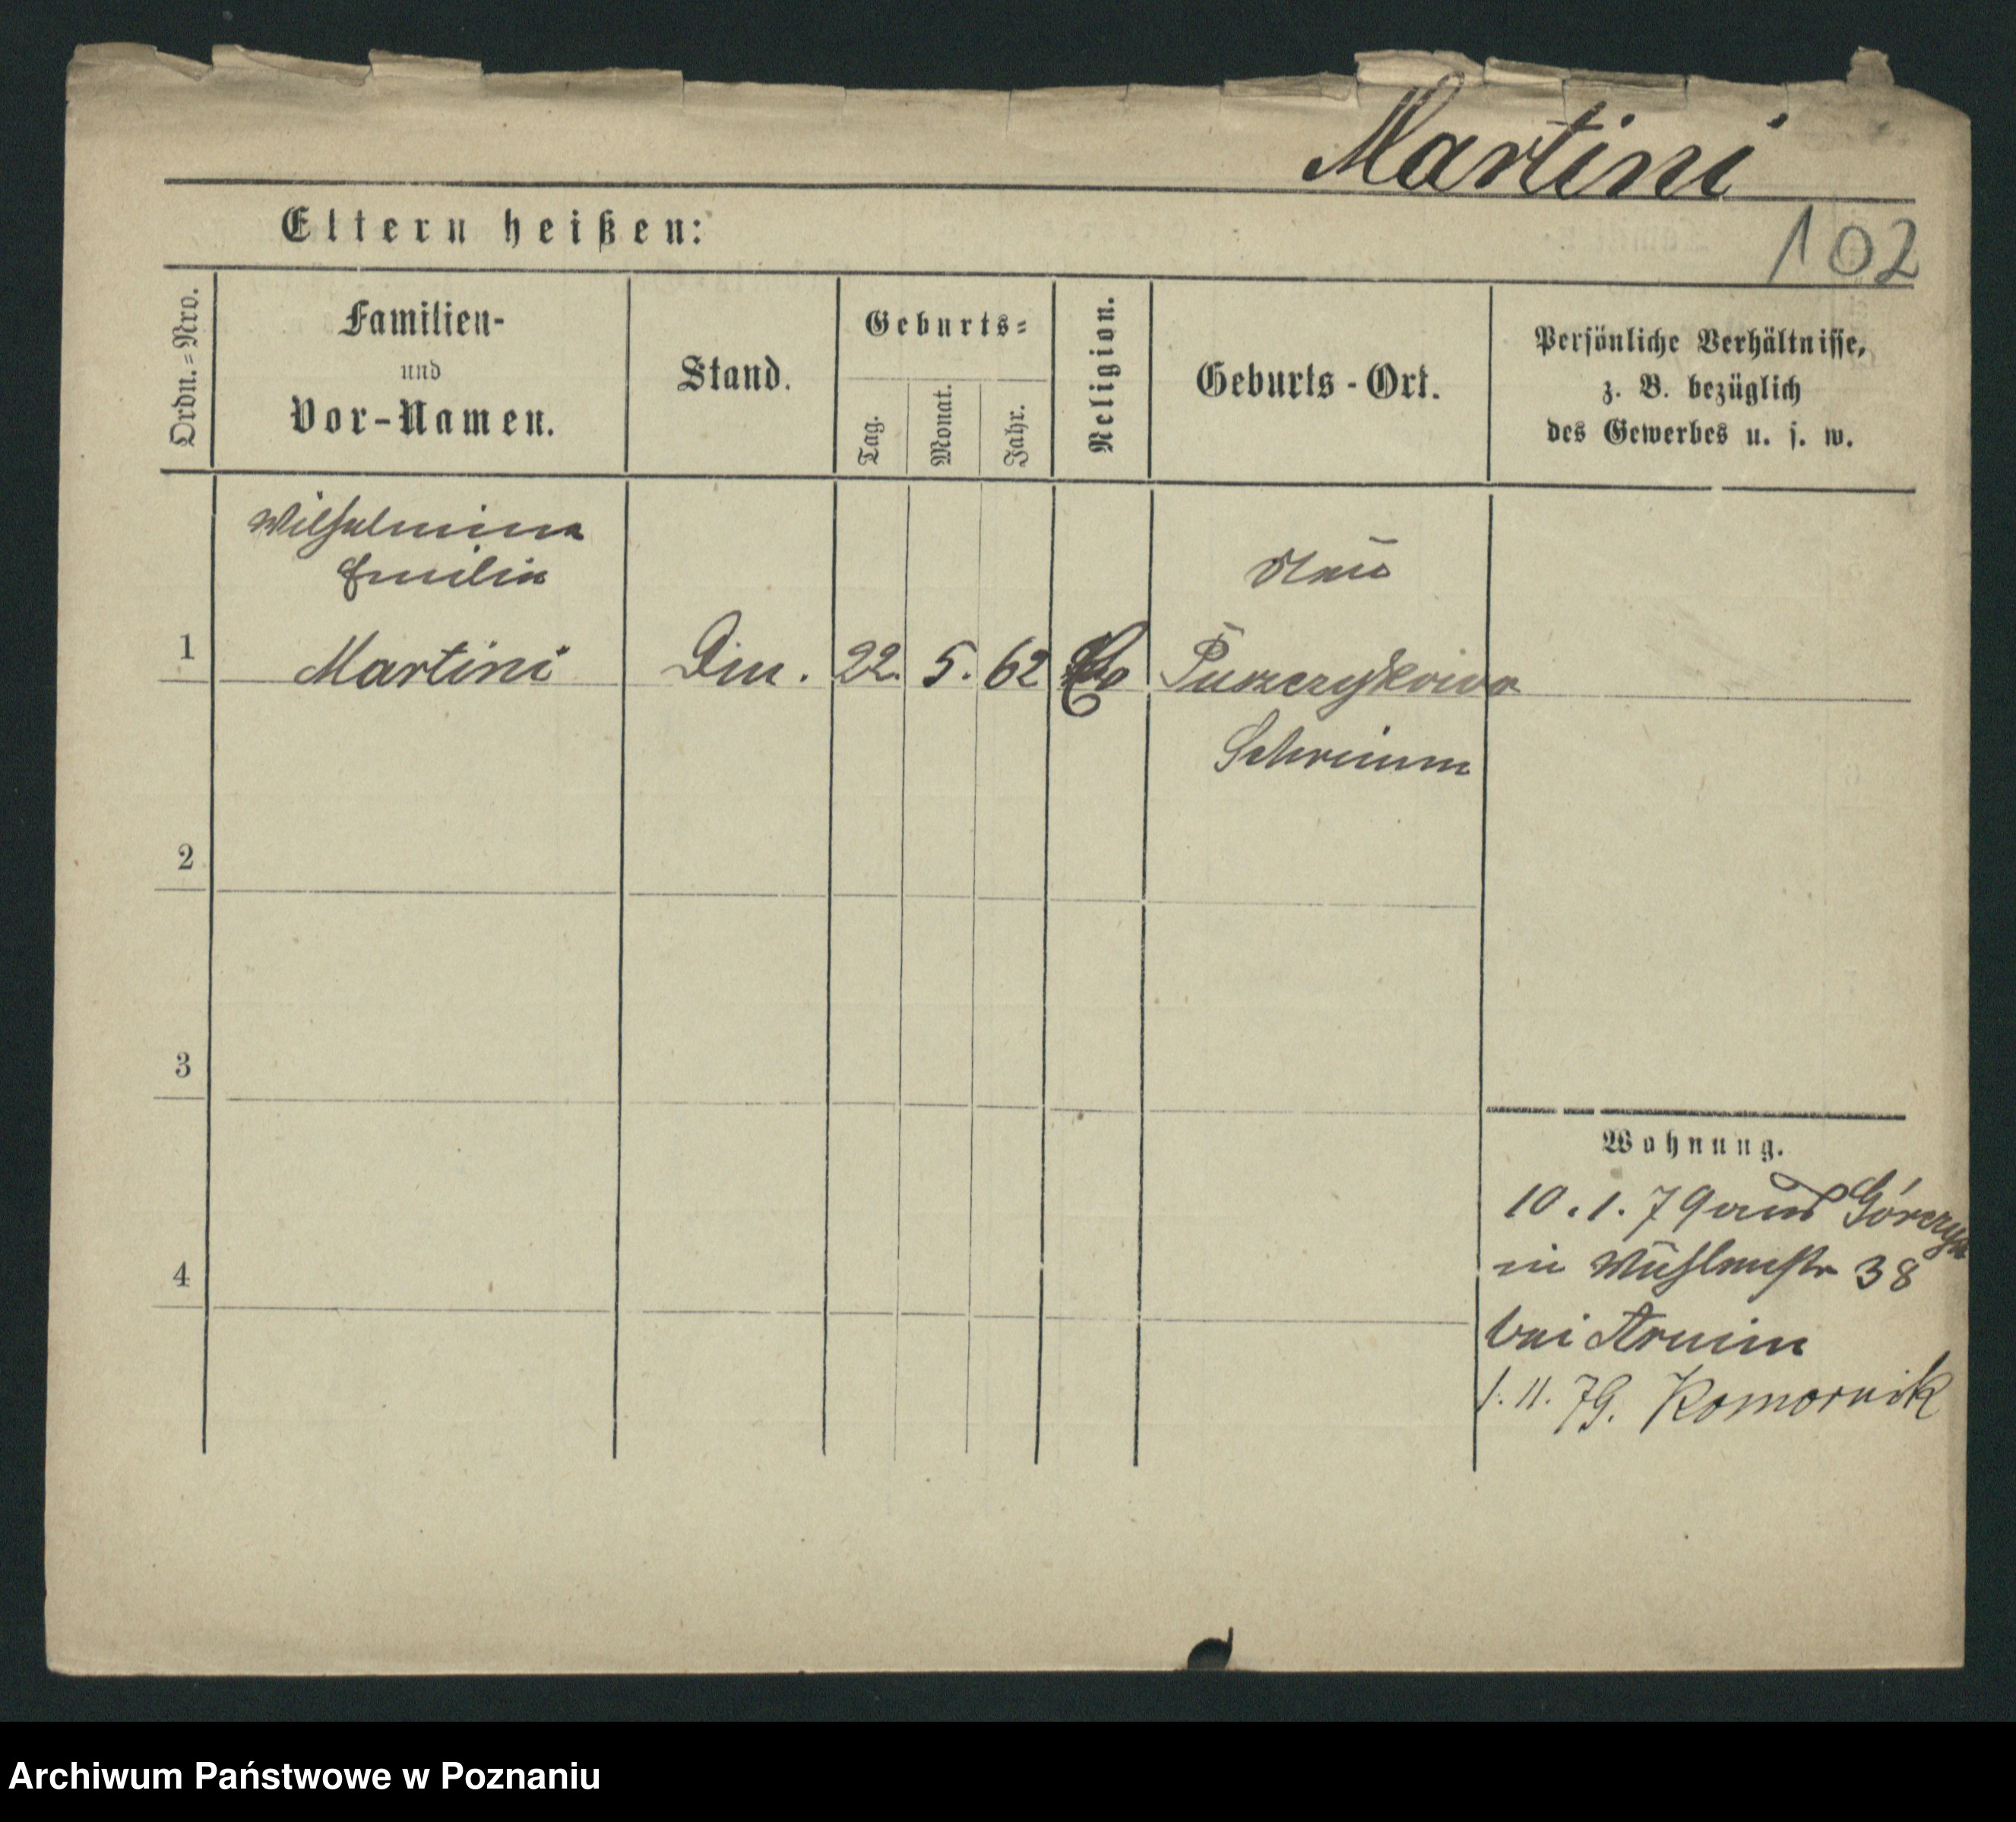 Martini
102
Eltern heißen:
Ordn.=Nro.
Familien-
und
Vor-Namen.
Stand.
Geburts=
Tag.
Monat.
Jahr.
Religion.
Geburts-Ort.
Persönliche Verhältnisse,
z. B. bezüglich
des Gewerbes u. s. w.
Wilhelmine
Emilie
Neu
1 Martini Din. 22. 5. 62 Puszczykowo
Schrimm
2
3
Wohnung.
10.1.79 aus Górczyn
in Mühlenstr 38
4
bei Arnim
1.11.79. Komornik
Archiwum Państwowe w Poznaniu